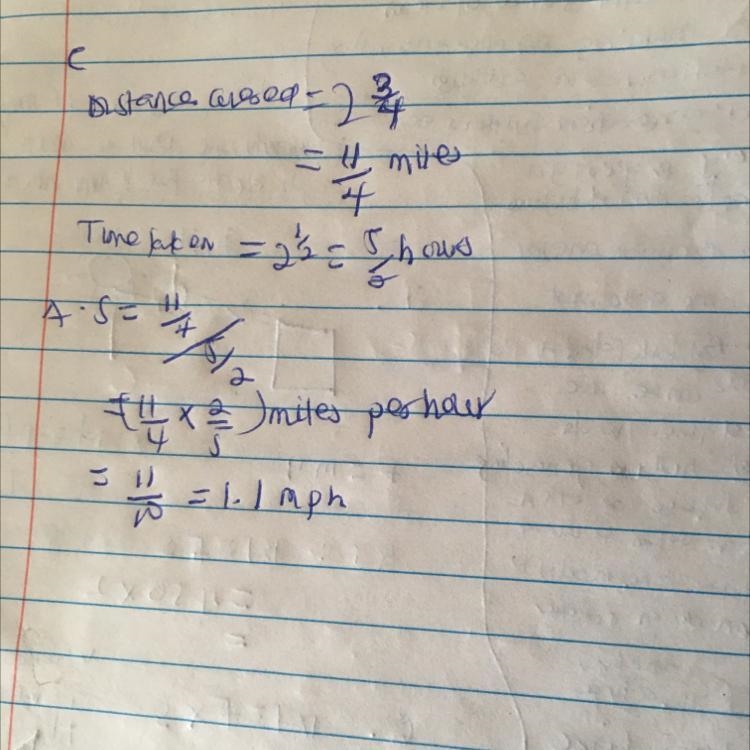 C
Distance covered = 2 3/4
= 11/4 miles
Time taken = 2 1/2 = 5/2 hours
A.S = 11/4 / 5/2
= (11/4 × 2/5) miles per hour
= 11/10 = 1.1 mph